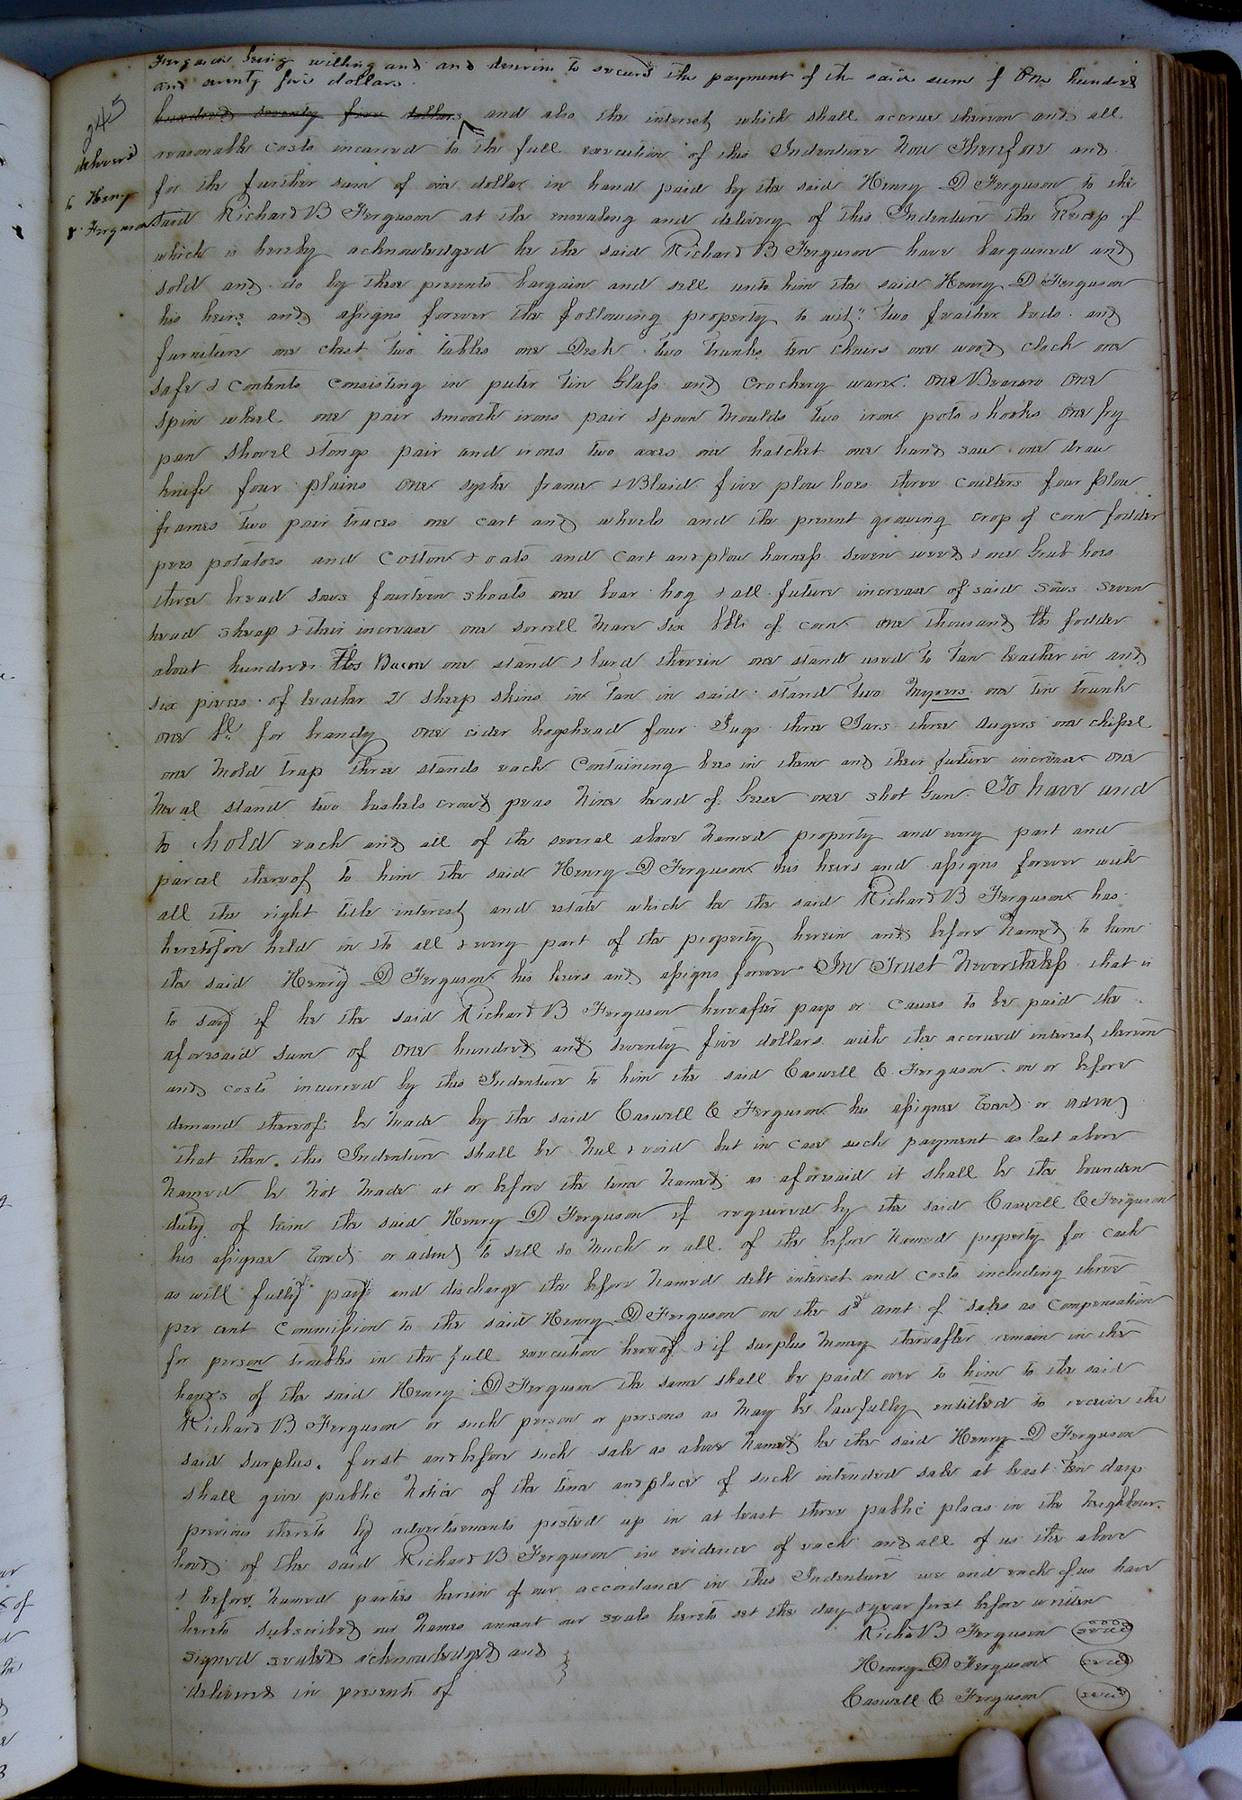 Ferguson being willing and and desirous to secure the payment of the said sum of One hundred
and seventy five dollars
245
hundred seventy five dollars and also the interest which shall accrue thereon and all
delivered
reasonable costs incurred to the full execution of this Indenture Now Therefore and
to Henry
for the further sum of one dollar in hand paid by the said Henry D Ferguson to the
D Ferguson
said Richard B Ferguson at the ensealing and delivery of this Indenture the Recep of
which is hereby acknowledged he the said Richard B Ferguson have bargained and
sold and do by these presents bargain and sell unto him the said Henry D Ferguson
his heirs and assigns forever the following property to wit: two feather beds and
furniture one chest two tables one Desk two trunks ten chairs one wood clock one
safe & contents consisting in puter Tin Glass and Crockery ware one Beaurro One
spin wheel one pair smooth irons pair spoon moulds two iron pots & hooks one fry
pan shovel & tongs pair and irons two axes one hatchet one hand saw one draw
knife four plains one sythe frame & Blaid five plow hoes three coulters four plow
frames two pair traces one cart and wheels and the present growing crop of corn fodder
peas potatoes and Cotton & oats and cart and plow harness seven weed & one Grub hoes
three bread sows fourteen shoats one boar hog & all future increase of said sows seven
head sheap & their increase one sorrell mare six bbls of corn one thousand lbs fodder
about hundred lbs Bacon one stand & lard therein one stand used to tan leather in and
six pieces of leather & sheep skins in tan in said stand two one tin trunk
one bl for brandy one cider hogshead four Jugs three Jars three augers one chissel
one mold trap three stands each containing bees in them and their future increase one
meal stand two bushels crowd peas nine head of Geese one shot Gun To have and
to hold each and all of the several above named property and every part and
parcel thereof to him the said Henry D Ferguson his heirs and assigns forever with
all the right title interest and estate which he the said Richard B Ferguson has
heretofore held in to all & every part of the property herein and before named to him
the said Henry D Ferguson his heirs and assigns forever In Trust Nevertheless that is
to say if he the said Richard B Ferguson hereafter pays or causes to be paid the
aforesaid sum of One hundred and seventy five dollars with the accrued interest thereon
and costs incurred by this Indenture to him the said Caswell C Ferguson on or before
demand thereof be made by the said Caswell C Ferguson his assignee Exect or admr
that then this Indenture shall be Nul & void but in case such payment as last above
named be not made at or before the time named as aforesaid it shall be the bounden
duty of him the said Henry D Ferguson if required by the said Caswell C Ferguson
his assignee Exect or admr to sell so much or all of the before named property for cash
as will fully pay and discharge the before named debt interest and costs including three
per cent Commission to the said Henry D Ferguson on the sd amt of sales as compensation
for person troubles in the full execution hereof & if surplus money thereafter remain in the
hands of the said Henry D Ferguson the same shall be paid over to him to the said
Richard B Ferguson or such person or persons as may be lawfully entitled to receive the
said surplus. first and before such sale as above named he the said Henry D Ferguson
shall give public Notice of the time and place of such intended sale at least ten days
previous thereto by advertisements posted up in at least three public places in the neighbour-
hood of the said Richard B Ferguson in evidence of each and all of us the above
& before named parties herein of our accordance in this Indenture we and each of us have
hereto subscribed our names annext our seals hereto set the day & year first before written
Richd B Ferguson seal
signed sealed acknowledged and
Henry D Ferguson seal
delivered in presents of
Caswell C Ferguson seal